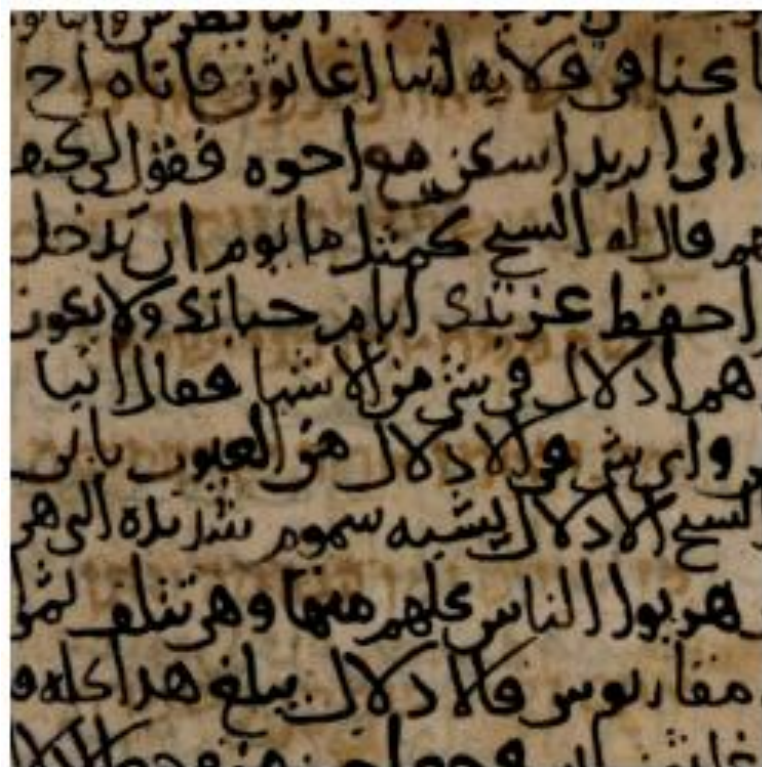 كنا في قلايه انبا اغاثون فاتاه اح
اني اريد اسكن مع احوه فقول لي كيف
هم قال له السيح كمثل ما يوم ان تدخل
احفظ غربتك ايام حياتك ولا يكون
هم ادلال في شي من الاشيا فقال انبا
واي شي في الادلال من العيوب يا بي
السيح الادلال يشبه سموم شديده التي هي
هربوا الناس كلهم منها وهي تتلف
مقاريوس فالادلال يبلغ هدا كله